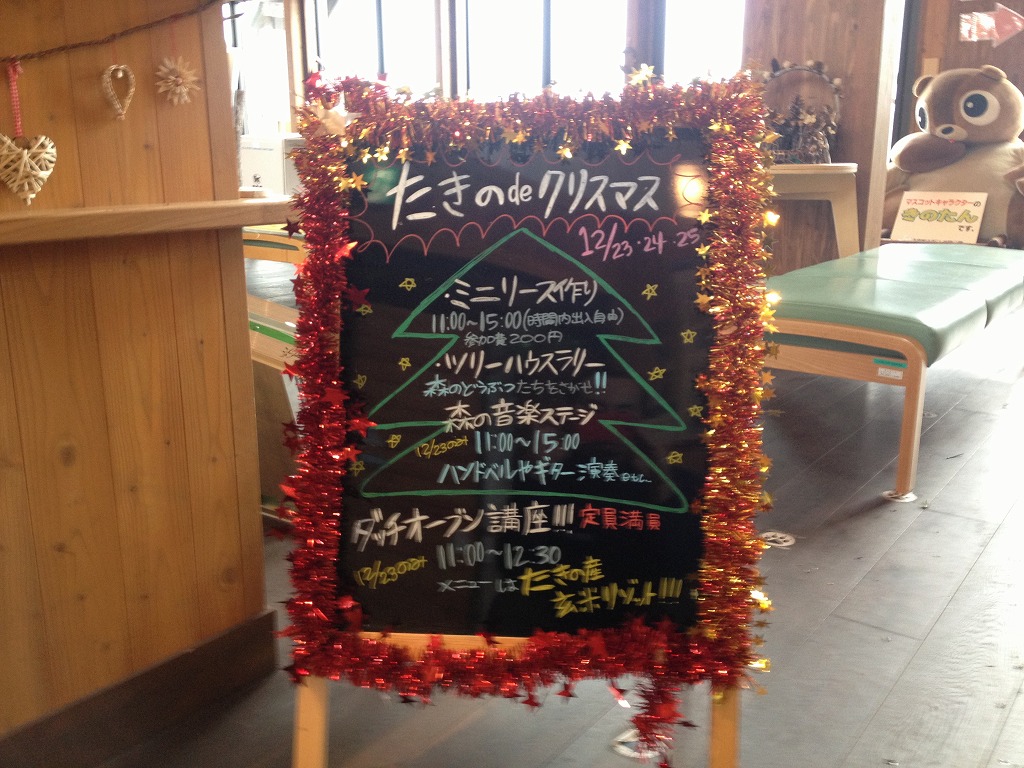 たきのdeクリスマス
12/23・24・25
・ミニリース作り
11:00〜15:00(時間内出入自由)
参加費200円
ツリーハウスラリー
森のどうぶつたちをさがせ!!
森の音楽ステージ
12/23のみ 11:00〜15:00
ハンドベルやギター演奏
ダッチオーブン講座!!! 定員満員
12/23のみ 11:00〜12:30
メニューは たきの産
玄米リゾット!!!
マスコットキャラクターの
きのたん
です。